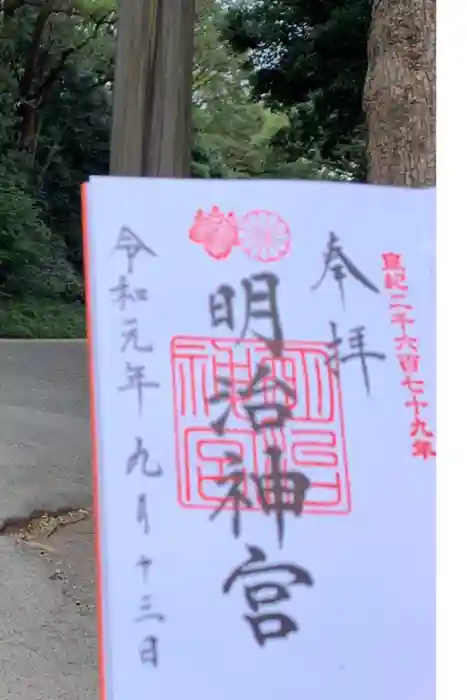 皇紀二千六百七十九年
奉拝
明治神宮
明治神宮
令和元年 九月十三日